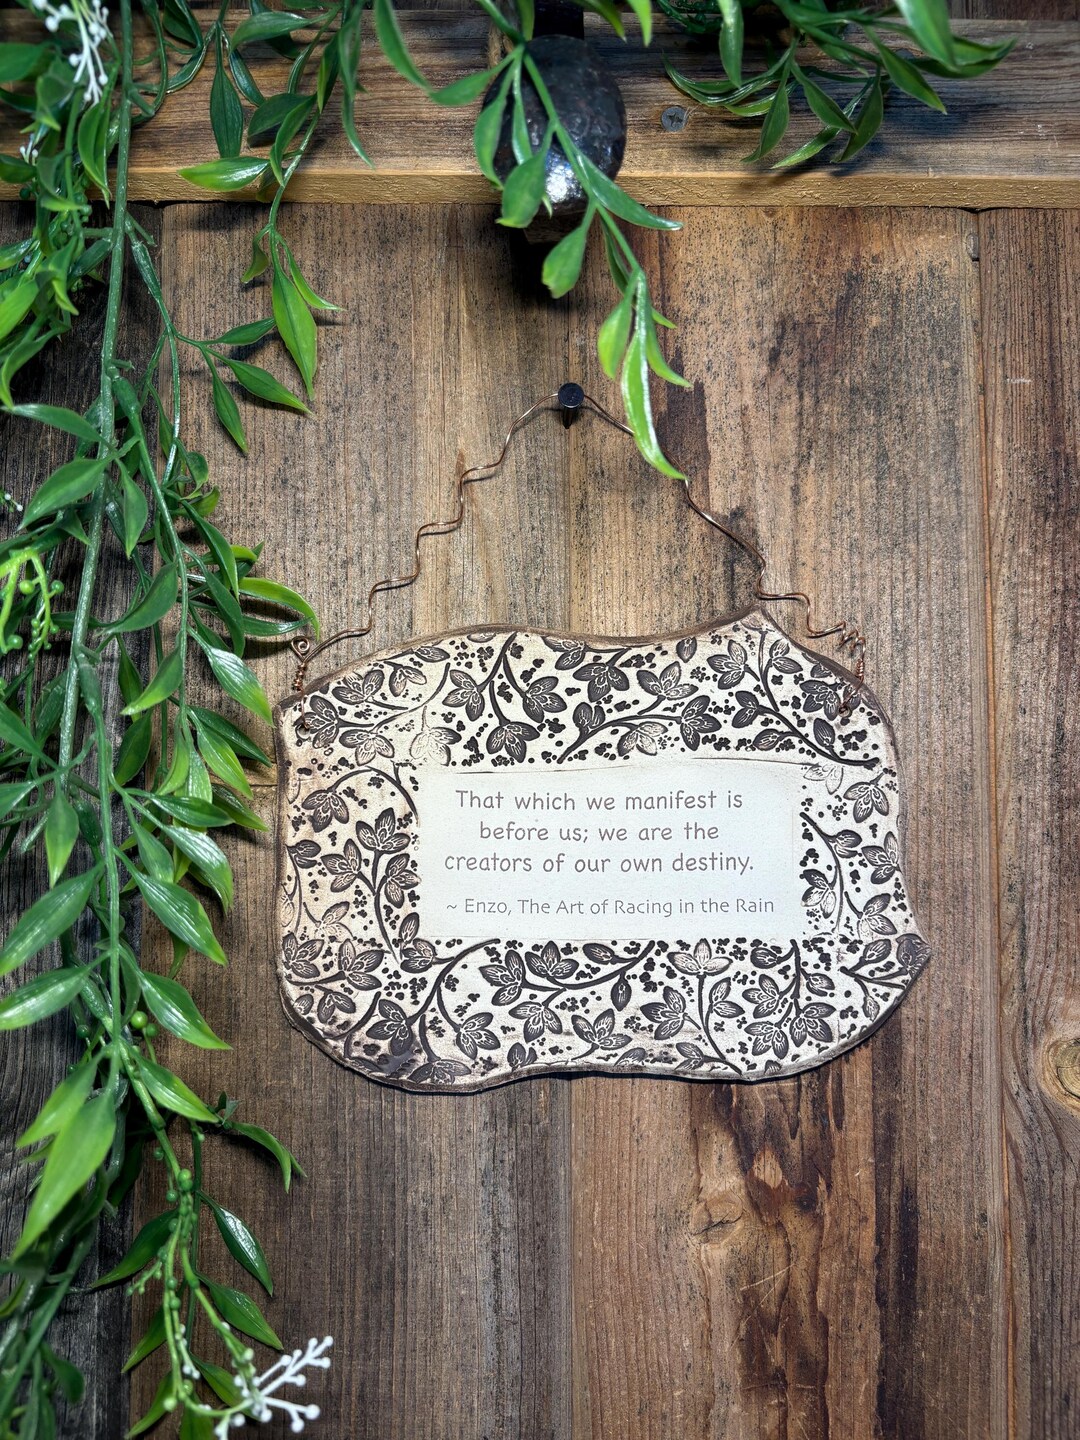 That which we manifest is
before us; we are the
creators of our own destiny.
~ Enzo, The Art of Racing in the Rain